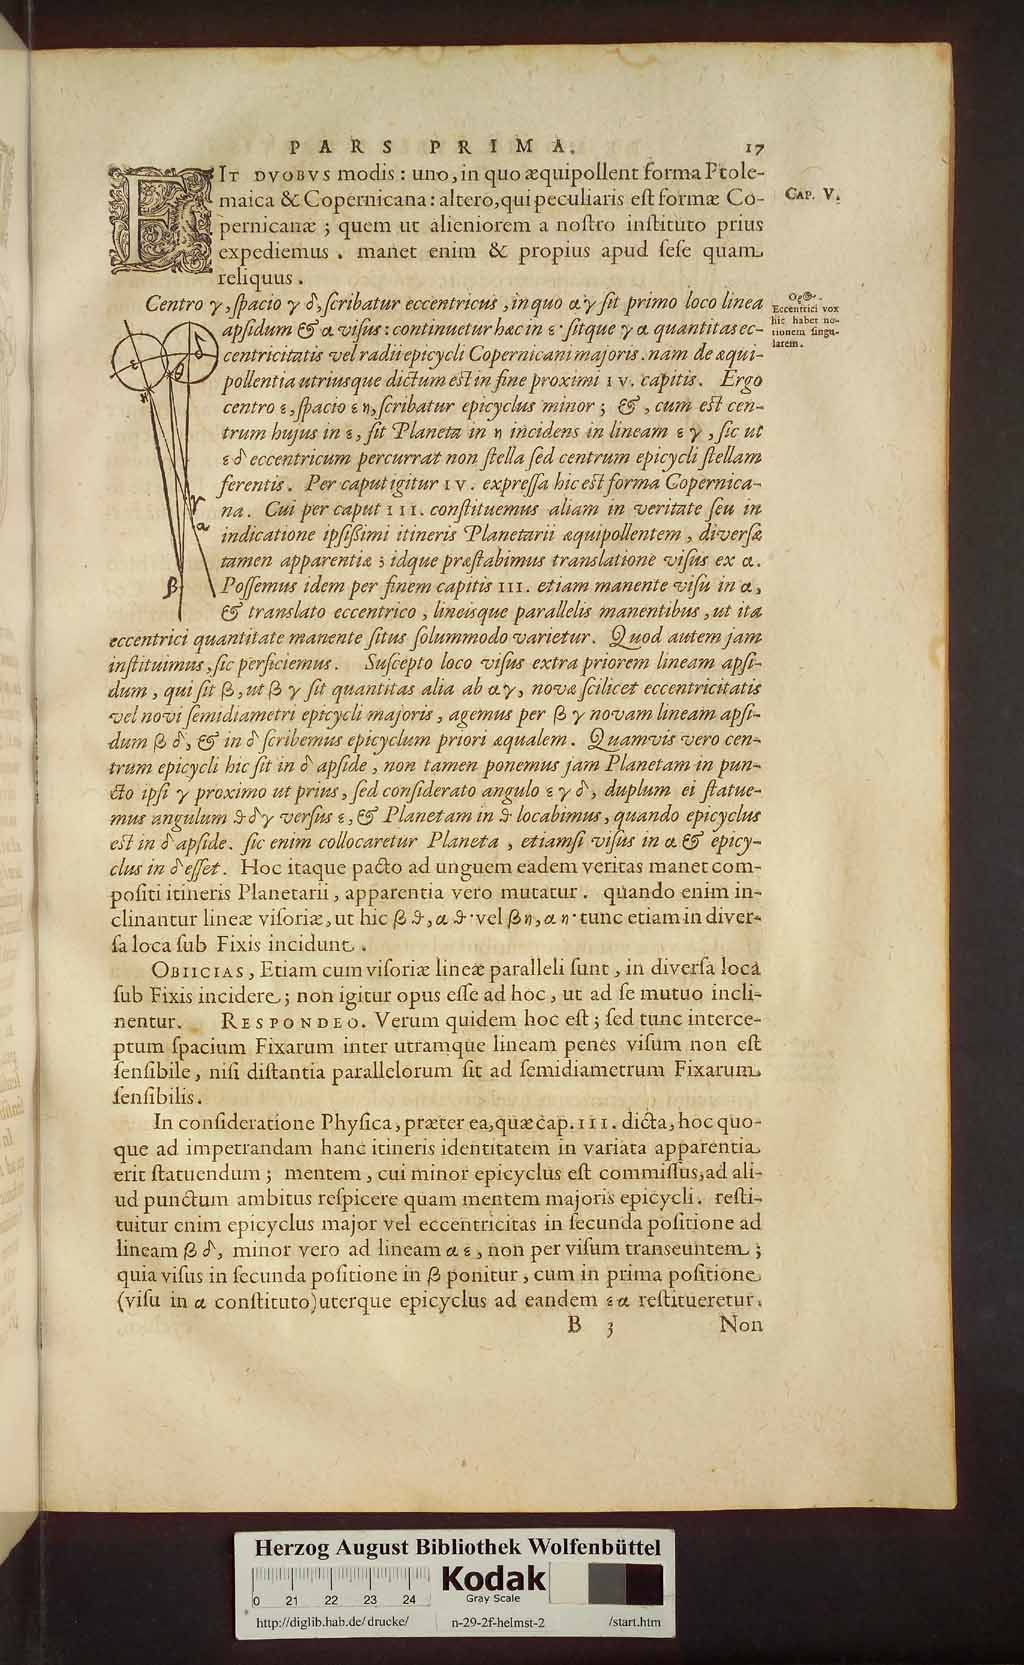 PARS PRIMA. 17
FIT DVOBVS modis : uno, in quo æquipollent forma Ptole-
maica & Copernicana : altero, qui peculiaris eſt formæ Co-
pernicanæ ; quem ut alieniorem a noſtro inſtituto prius
expediemus . manet enim & propius apud ſeſe quam
reliquus .
CAP. V.
Centro γ, ſpacio γ δ, ſcribatur eccentricus , in quo α γ ſit primo loco linea
apſidum & α viſus : continuetur hæc in ε · ſitque γ α quantitas ec-
centricitatis vel radii epicycli Copernicani majoris . nam de æqui-
pollentia utriusque dictum eſt in fine proximi IV. capitis . Ergo
centro ε, ſpacio ε η, ſcribatur epicyclus minor ; & , cum eſt cen-
trum hujus in ε, ſit Planeta in η incidens in lineam ε γ , ſic ut
ε δ eccentricum percurrat non ſtella ſed centrum epicycli ſtellam
ferentis . Per caput igitur IV. expreſſa hic eſt forma Copernica-
na . Cui per caput III. conſtituemus aliam in veritate ſeu in
indicatione ipſiſſimi itineris Planetarii æquipollentem , diverſæ
tamen apparentiæ ; idque præſtabimus translatione viſus ex α.
Poſſemus idem per finem capitis III. etiam manente viſu in α,
& translato eccentrico , lineisque parallelis manentibus , ut ita
eccentrici quantitate manente ſitus ſolummodo varietur . Quod autem jam
inſtituimus , ſic perficiemus . Suſcepto loco viſus extra priorem lineam apſi-
dum , qui ſit β, ut β γ ſit quantitas alia ab α γ, novæ ſcilicet eccentricitatis
vel novi ſemidiametri epicycli majoris , agemus per β γ novam lineam apſi-
dum β δ, & in δ ſcribemus epicyclum priori æqualem . Quamvis vero cen-
trum epicycli hic ſit in δ apſide , non tamen ponemus jam Planetam in pun-
cto ipſi γ proximo ut prius, ſed conſiderato angulo ε γ δ, duplum ei ſtatue-
mus angulum ϑ δ γ verſus ε, & Planetam in ϑ locabimus, quando epicyclus
eſt in δ apſide . ſic enim collocaretur Planeta , etiamſi viſus in α & epicy-
clus in δ eſſet . Hoc itaque pacto ad unguem eadem veritas manet com-
poſiti itineris Planetarii , apparentia vero mutatur . quando enim in-
clinantur lineæ viſoriæ, ut hic β ϑ, α ϑ · vel β η, α η · tunc etiam in diver-
ſa loca ſub Fixis incidunt .
OBIICIAS , Etiam cum viſoriæ lineæ paralleli ſunt , in diverſa loca
ſub Fixis incidere ; non igitur opus eſſe ad hoc , ut ad ſe mutuo incli-
nentur . RESPONDEO. Verum quidem hoc eſt ; ſed tunc interce-
ptum ſpacium Fixarum inter utramque lineam penes viſum non eſt
ſenſibile , niſi diſtantia parallelorum ſit ad ſemidiametrum Fixarum
ſenſibilis .
In conſideratione Phyſica, præter ea, quæ cap. III. dicta, hoc quo-
que ad impetrandam hanc itineris identitatem in variata apparentia
erit ſtatuendum ; mentem , cui minor epicyclus eſt commiſſus, ad ali-
ud punctum ambitus reſpicere quam mentem majoris epicycli . reſti-
tuitur enim epicyclus major vel eccentricitas in ſecunda poſitione ad
lineam β δ, minor vero ad lineam α ε, non per viſum transeuntem ;
quia viſus in ſecunda poſitione in β ponitur , cum in prima poſitione
(viſu in α conſtituto) uterque epicyclus ad eandem ε α reſtitueretur.
B 3 Non
Eccentrici vox
hic habet no-
tionem ſingu-
larem .
ε
δ
θ
η
γ
α
β
Herzog August Bibliothek Wolfenbüttel
0 21 22 23 24
Kodak
Gray Scale
http://diglib.hab.de/drucke/ n-29-2f-helmst-2 /start.htm